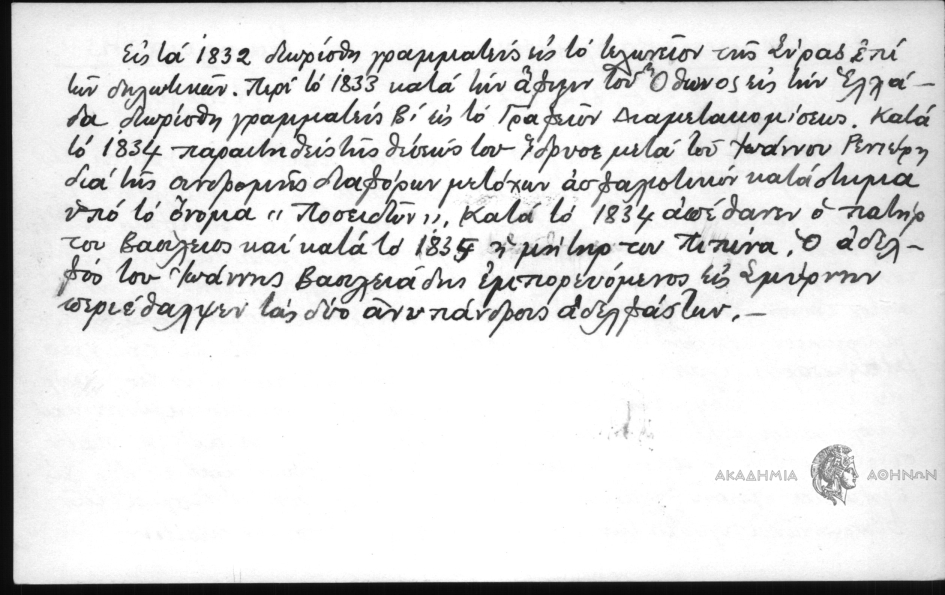 Εἰς τά 1832 διωρίσθη γραμματεύς εἰς τό τελωνεῖον τῆς Σύρας ἐπί
τῶν δηλωτικῶν. Περί τό 1833 κατά τήν ἄφιξιν τοῦ Ὄθωνος εἰς τήν Ἑλλά-
δα διωρίσθη γραμματεύς Β! εἰς τό Γραφεῖον Διαμετακομίσεως. Κατά
τό 1834 παραιτηθείς τῆς θέσεώς του ἵδρυσε μετά τοῦ Ἰωάννου Ρενιέρη
διά τῆς συνδρομῆς διαφόρων μετόχων ἀσφαλιστικόν κατάστημα
ὑπό τό ὄνομα "Ποσειδῶν". Κατά τό 1834 ἀπέθανεν ὁ πατήρ
του Βασίλειος καί κατά το 1835 ἡ μήτηρ του Πιπίνα. Ὁ ἀδελ-
φός του Ἰωάννης Βασιλειάδης ἐμπορευόμενος εἰς Σμύρνην
περιέθαλψεν τάς δύο ἀνυπάνδρους ἀδελφάς των.-
ΑΚΑΔΗΜΙΑ ΑΘΗΝΩΝ